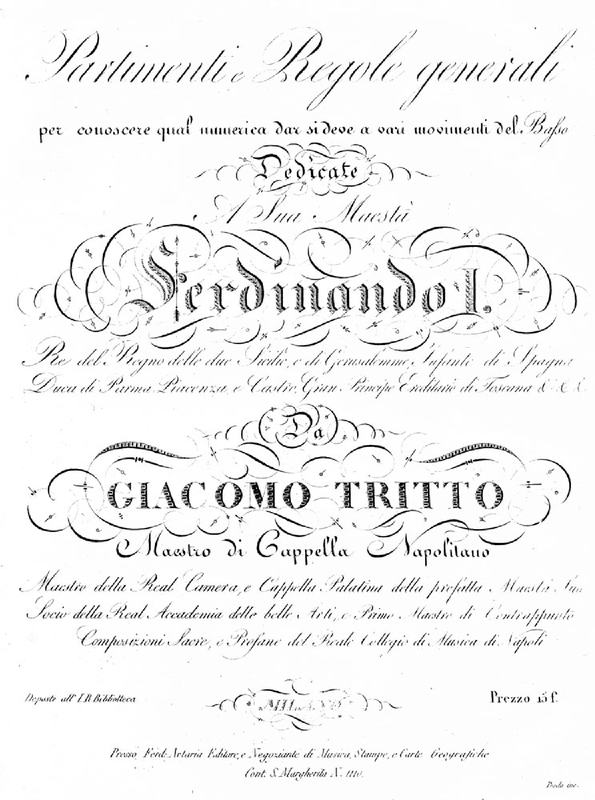 Partimenti e Regole generali
per conoscere qual numerica dar si deve a vari movimenti del Basso
Dedicate
A Sua Maestà
Ferdinando I.
Re del Regno delle due Sicilie, e di Gerusalemme, Infante di Spagna
Duca di Parma, Piacenza, e Castro, Gran Principe Ereditario di Toscana & & &
Da
GIACOMO TRITTO
Maestro di Cappella Napolitano
Maestro della Real Camera, e Cappella Palatina della prefatta Maestà Sua
Socio della Real Accademia delle belle Arti, e Primo Maestro di Contrappunto
Composizioni Sacre, e Profane del Reale Collegio di Musica di Napoli
Deposto all' I.R. Biblioteca
MILANO
Prezzo 15 f.
Presso Ferd. Artaria Editore, e Negoziante di Musica, Stampe, e Carte Geografiche
Cont. S. Margherita N. 1110.